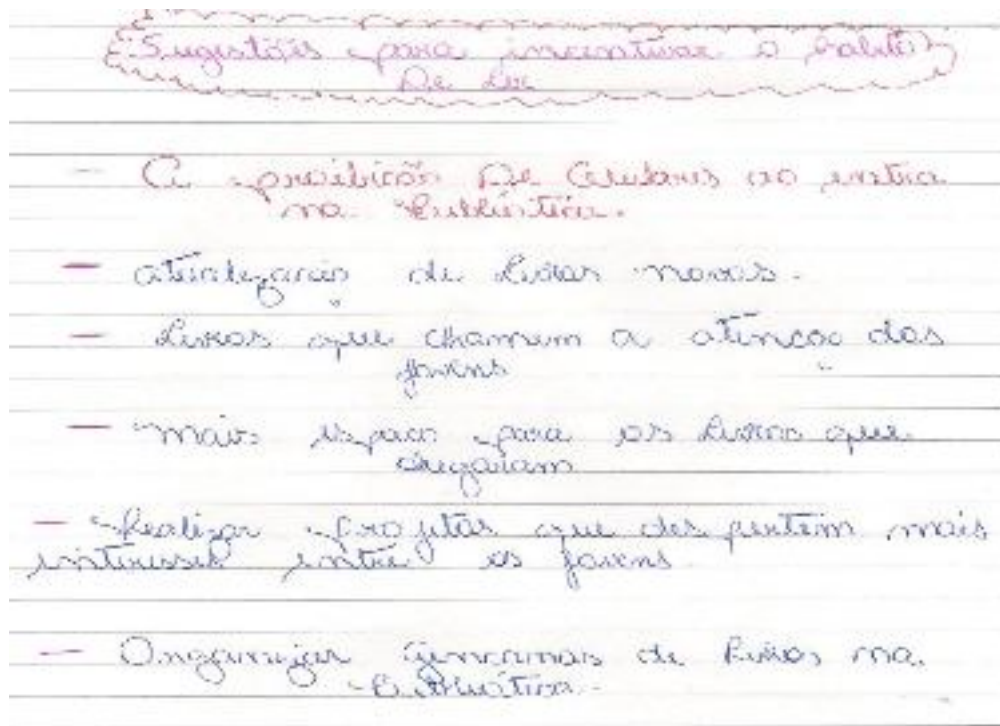 Sugestõis para incentivar o habito
De Ler
- A proibição De Celulares ao entra
na
- atualização de Livros novos.
- Livros que chamem a atenção dos
jovens
- mais espaço para os Livros que
chegaram
- Realizar Projetos que des pertem mais
interesses entre os jovens
- de Livros na